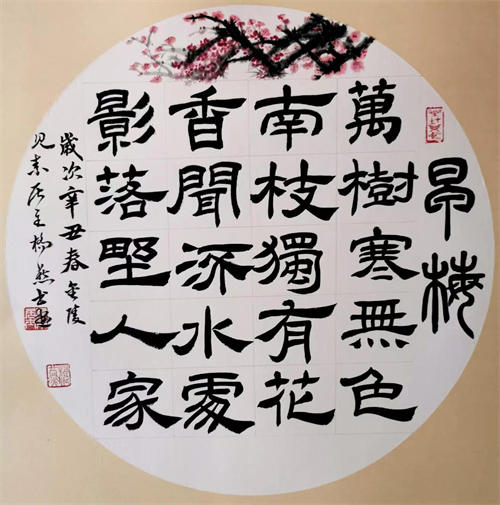 早梅
萬樹寒無色
南枝獨有花
香聞流水處
影落野人家
歲次辛丑春金陵
见素居主楊燕书